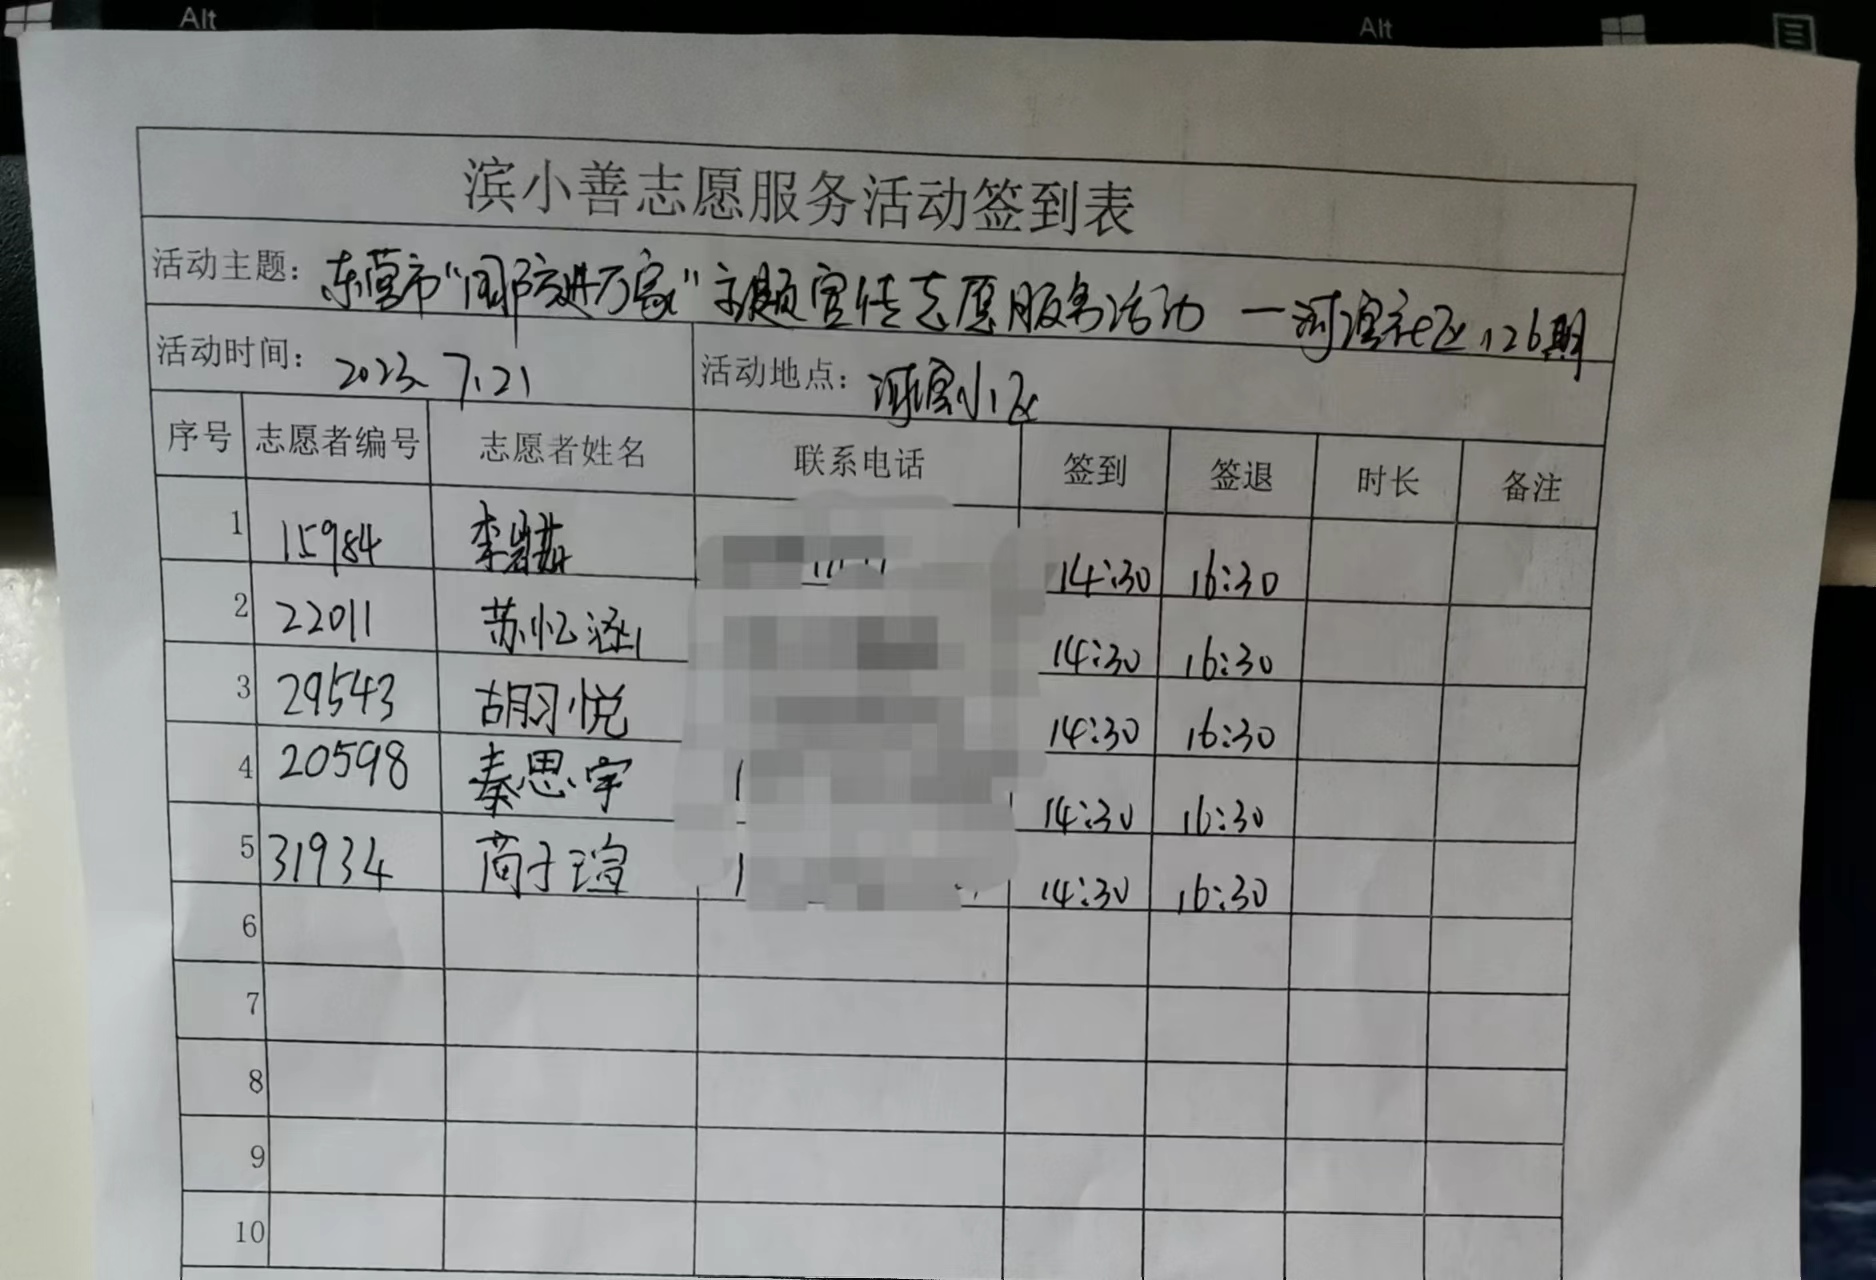 Alt
Alt
滨小善志愿服务活动签到表
活动主题：东营市“国防进万家”主题宣传志愿服务活动 —河滨社区126期
活动时间：2023.7.21 活动地点：河滨小区
序号 志愿者编号 志愿者姓名 联系电话 签到 签退 时长 备注
1 15984 李 14:30 16:30
2 22011 苏忆涵 14:30 16:30
3 29543 胡习悦 14:30 16:30
4 20598 秦思宇 14:30 16:30
5 31934 苘于瑄 14:30 16:30
6
7
8
9
10